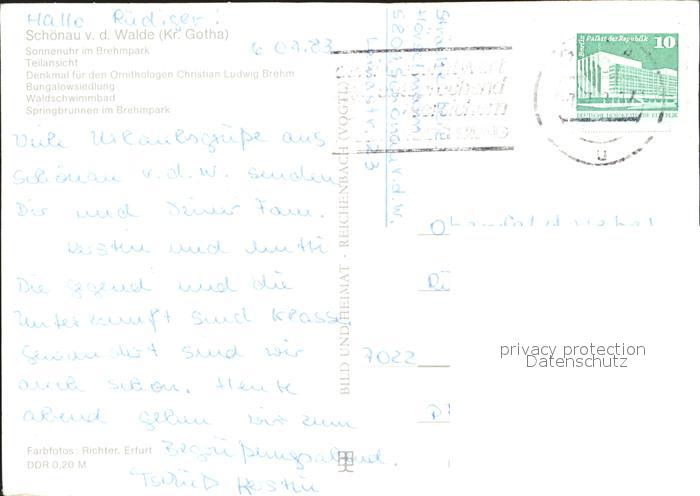 Hallo Rüdiger!
Schönau v. d. Walde (Kr. Gotha)
Sonnenuhr im Brehmpark
Teilansicht
Denkmal für den Ornithologen Christian Ludwig Brehm
Bungalowsiedlung
Waldschwimmbad
Springbrunnen im Brehmpark
Viele Urlaubsgrüße aus
Schönau v. d. W. senden
Dir und Deiner Fam.
Kerstin und Mutti
Die Gegend und die
Unterkunft sind Klasse.
Gewandert sind wir
auch schon. Heute
abend gehen wir zum
Begrüßungsabend.
Tschüß Kerstin
Farbfotos: Richter, Erfurt
DDR 0,20 M
BILD UND HEIMAT · REICHENBACH (VOGTL)
5801 Schönau v. d. W.
Berlin Palast der Republik
10
DEUTSCHE DEMOKRATISCHE REPUBLIK
7022
privacy protection
Datenschutz